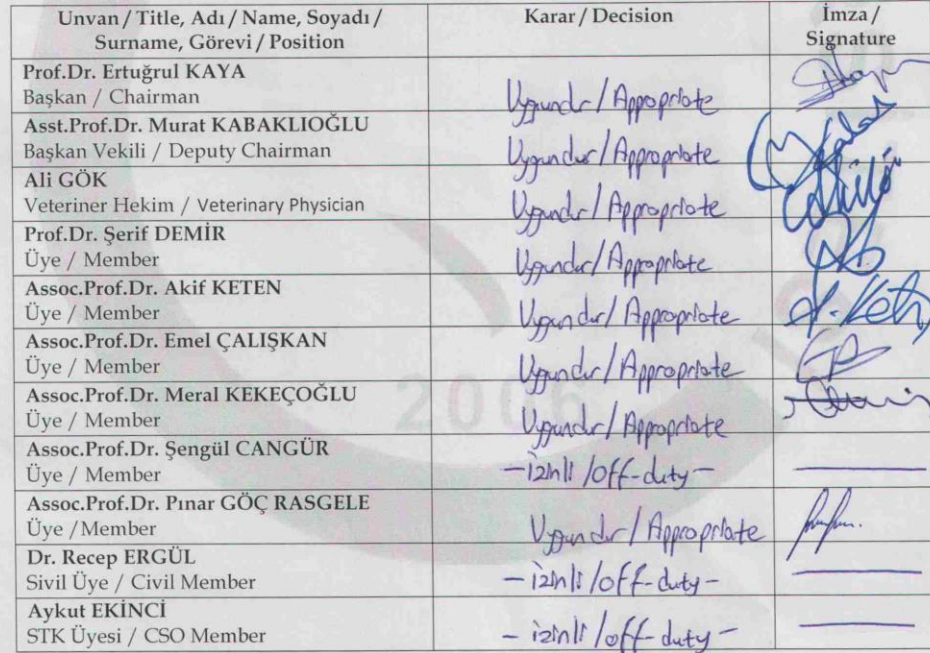 Unvan / Title, Adı / Name, Soyadı / Surname, Görevi / Position
Karar / Decision
İmza / Signature
Prof.Dr. Ertuğrul KAYA
Başkan / Chairman
Uygundur / Appropriate
Asst.Prof.Dr. Murat KABAKLIOĞLU
Başkan Vekili / Deputy Chairman
Uygundur / Appropriate
Ali GÖK
Veteriner Hekim / Veterinary Physician
Uygundur / Appropriate
Prof.Dr. Şerif DEMİR
Üye / Member
Uygundur / Appropriate
Assoc.Prof.Dr. Akif KETEN
Üye / Member
Uygundur / Appropriate
Assoc.Prof.Dr. Emel ÇALIŞKAN
Üye / Member
Uygundur / Appropriate
Assoc.Prof.Dr. Meral KEKEÇOĞLU
Üye / Member
Uygundur / Appropriate
Assoc.Prof.Dr. Şengül CANGÜR
Üye / Member
- izinli / off-duty -
Assoc.Prof.Dr. Pınar GÖÇ RASGELE
Üye /Member
Uygundur / Appropriate
Dr. Recep ERGÜL
Sivil Üye / Civil Member
- izinli / off-duty -
Aykut EKİNCİ
STK Üyesi / CSO Member
- izinli / off-duty -
2006